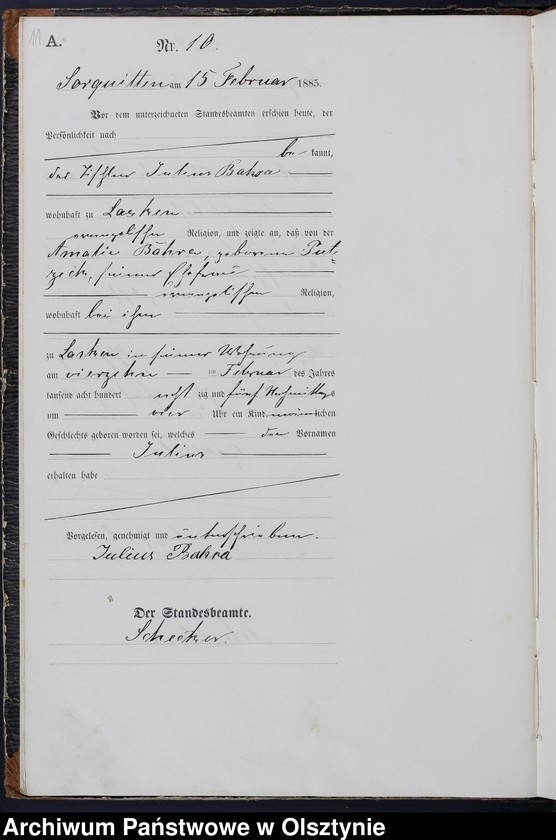 11
A.
Nr. 10.
Sorquitten am 15 Februar 1885.
Vor dem unterzeichneten Standesbeamten erschien heute, der
Persönlichkeit nach
be kannt,
der Julius Bahra
wohnhaft zu Lasken
evangelischer Religion, und zeigte an, daß von der
Amalie Bahra, geborene Put-
zech, seiner Ehefrau
evangelischer Religion,
wohnhaft bei ihm
zu Lasken in seiner Wohnung
am vierzehn ten Februar des Jahres
tausend acht hundert acht zig und fünf Nachmittags
um vier Uhr ein Kind männlichen
Geschlechts geboren worden sei, welches den Vornamen
Julius
erhalten habe
Vorgelesen, genehmigt und unterschrieben.
Julius Bahra
Der Standesbeamte.
Archiwum Państwowe w Olsztynie